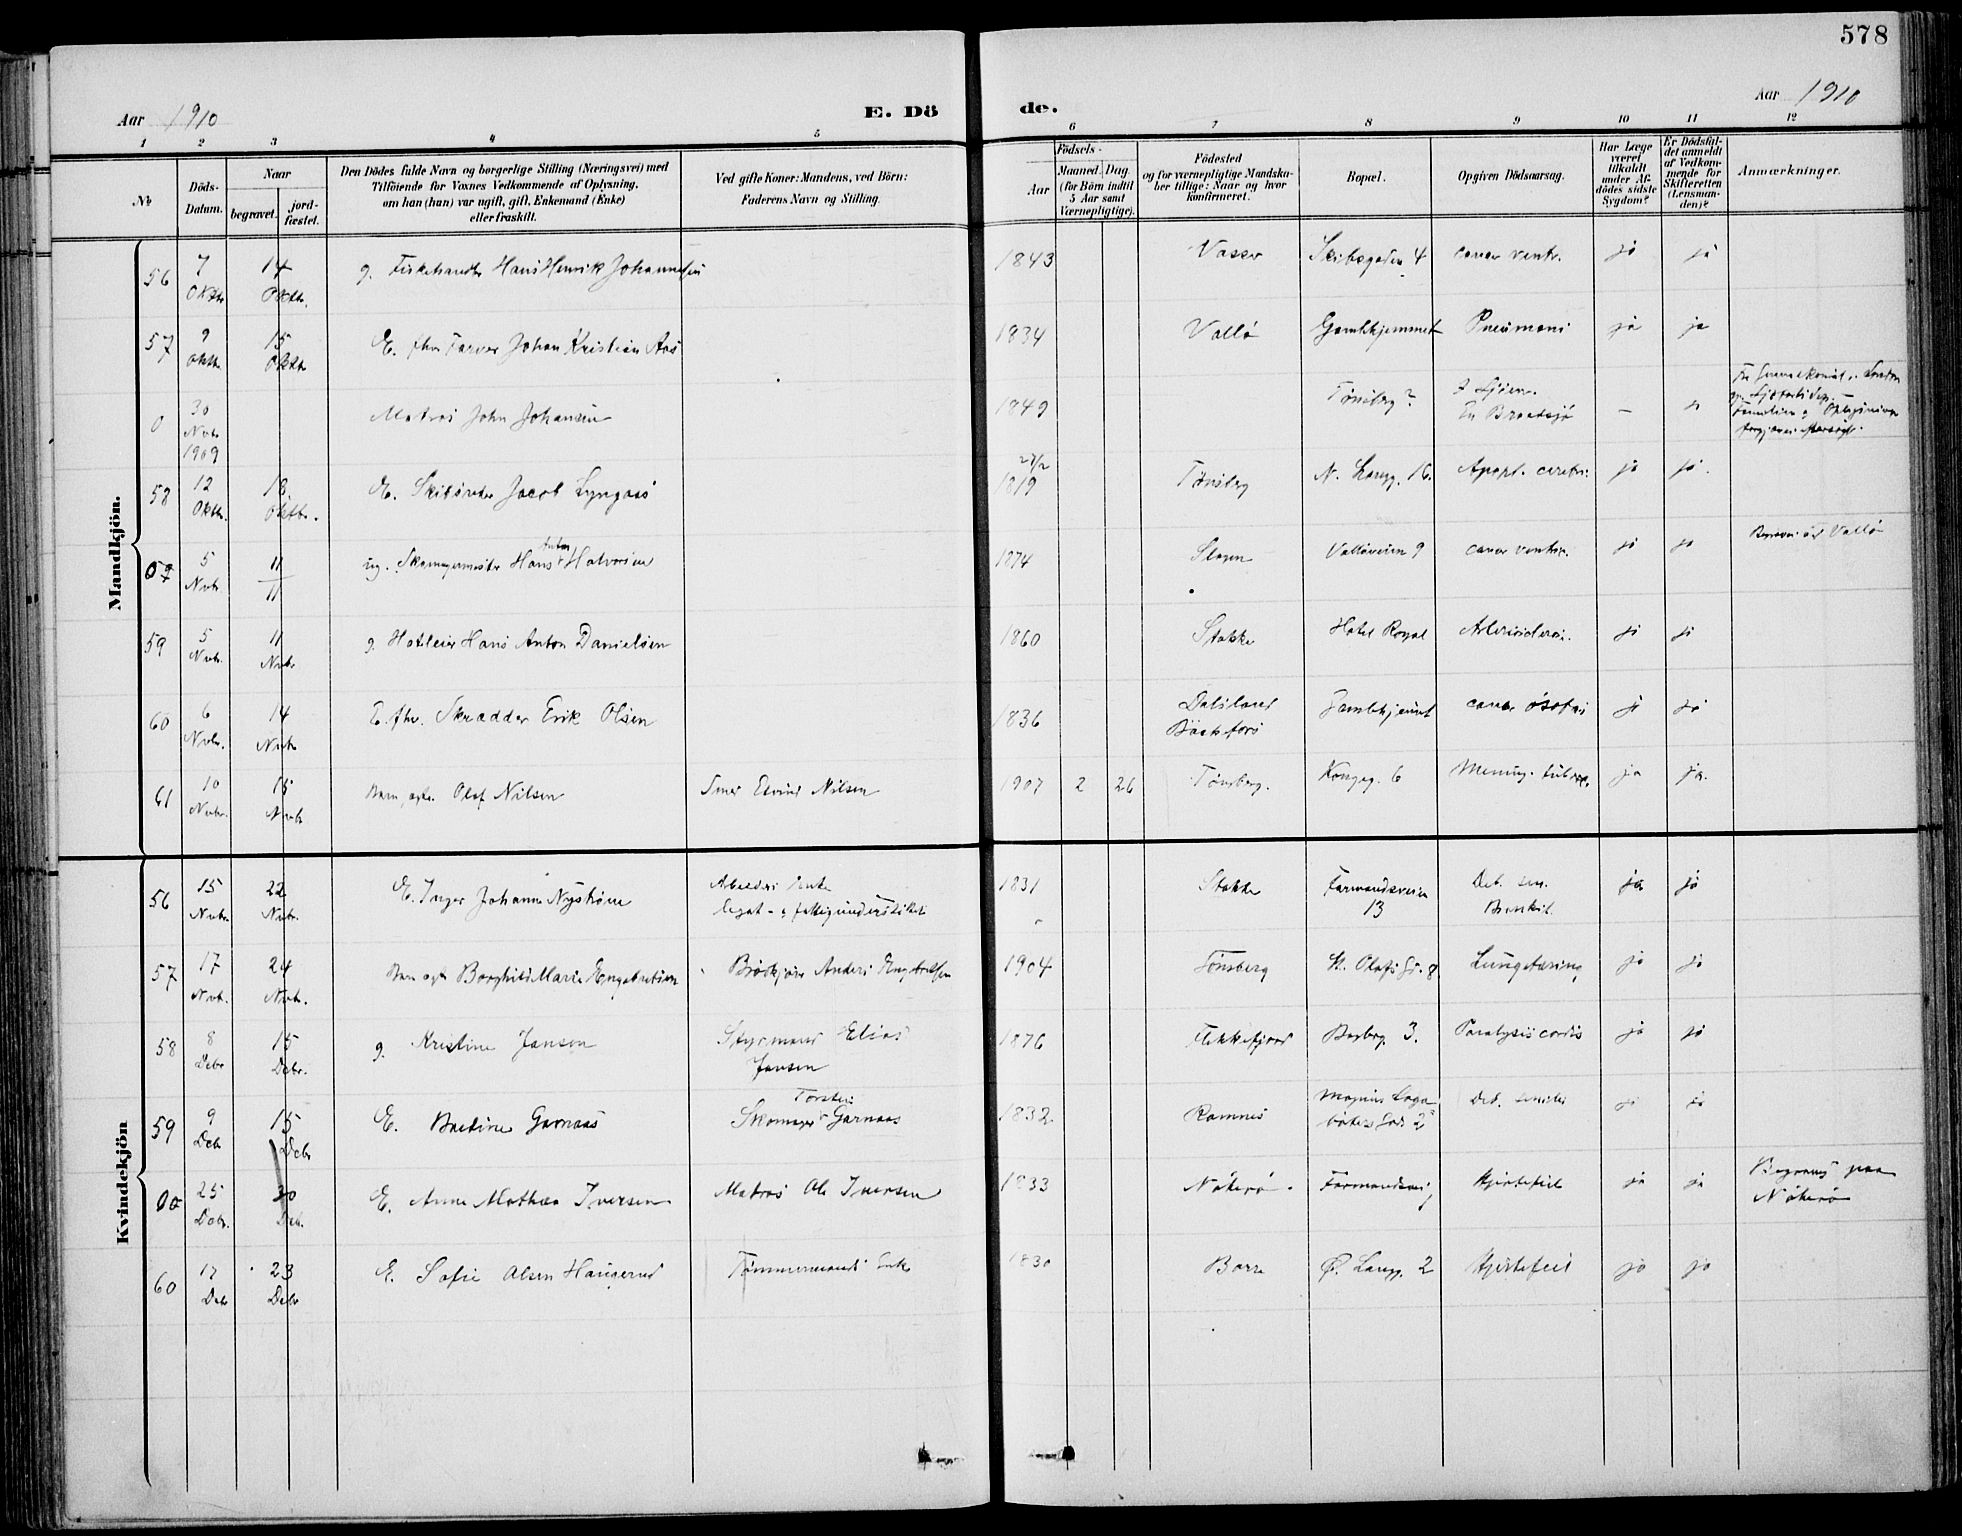 578
Aar 1910
E. Dö
de.
Aar 1910
1 2 3 4 5 6 7 8 9 10 11 12
No
Döds-Datum.
Naar
begravet.
jord-fæstet.
Den Dödes fulde Navn og borgerlige Stilling (Næringsvei) med
Tilföiende for Voxnes Vedkommende af Oplysning,
om han (hun) var ugift, gift, Enkemand (Enke)
eller fraskilt.
Ved gifte Koner: Mandens, ved Börn:
Faderens Navn og Stilling.
Födsels-
Aar
Maaned. Dag.
(for Börn indtil
5 Aar samt
Værnepligtige).
Födested
og for værnepligtige Mandska-
ber tillige: Naar og hvor
konfirmeret.
Bopæl.
Opgiven Dödsaarsag.
Har Læge
været
tilkaldt
under Af-
dödes sidste
Sygdom?
Er Dödsfal-
det anmeldt
af Vedkom-
mende for
Skifteretten
(Lensman-
den)?
Anmærkninger.
Mandkjön.
56 7 Oktbr. 14 Oktbr. g. Fiskehandler Hans Henrik Johannesen 1843 Vasser Skibsgaden 4 cancer ventr. ja ja
57 9 Oktbr. 15 Oktbr. E. fhv. Farver Johan Kristian Aas 1834 Vallø Gamlehjemmet Pneumoni ja ja
0 30 Novbr 1909 Matros John Johansen 1849 Tønsberg ? I Sjøen. En Braadsjø —
58 12 Oktbr. 18 Oktbr. E. Skibsreder Jacob Lyngaas 27/2 1819 Tønsberg N. Langg. 16. Apopl. cerebri. ja ja.
5 Nvbr. 11/11 ug. Skomagermester Hans Anton Halvorsen 1874 Slagen Valløveien 9 cancer ventr. ja ja Vallø
59 5 Nvbr. 11 Nvbr g. Hans Anton Danielsen 1860 Stokke Hotel Royal ja ja
60 6 Nvbr. 14 Nvbr E. fhv. Skrædder Erik Olsen 1836 Dalsland Gamlehjemmet cancer ja ja
61 10 Nvbr. 15 Nvbr Barn, egte. Olaf Nilsen Smed Eivind Nilsen 1907 2 26 Tønsberg. Kongeg. 6 Mening. tuberc. ja ja.
Kvindekjön
56 15 Nvbr. 22 Nvbr. E. Inger Johanne Nystrøm Arbeiders Enke legat- og fattigunderstøttet 1831 Stokke Farmandsveien 13 Deb. sen. Bronkit. ja ja
57 17 Nvbr. 24 Nvbr. Barn egte Borghild Marie Engebretsen Anders Engebretsen 1904 Tønsberg St. Olafs Gd. 8 Lungetæring ja ja
58 8 Debr 15 Debr. g. Kristine Jansen Styrmand Elias Jansen 1876 Flekkefjord 3. Paralysis cordis ja ja
59 9 Debr 15 Debr E. Bastine Garnaas Skomager Torstein Garnaas 1832 Ramnes Magnus Lagabøters Gd. 2 Deb. senilis ja ja
25 Debr. 30 Deb. E. Anne Mathea Iversen Matros Ole Iversen 1833 Nøterø. Farmandsvei Hjertefeil ja ja Begravet paa Nøterø
60 17 Debr 23 Debr E. Sofie Olsen Haugerud Tømmermands Enke 1830 Borre Ø. Langg. 2 Hjertefeil ja ja